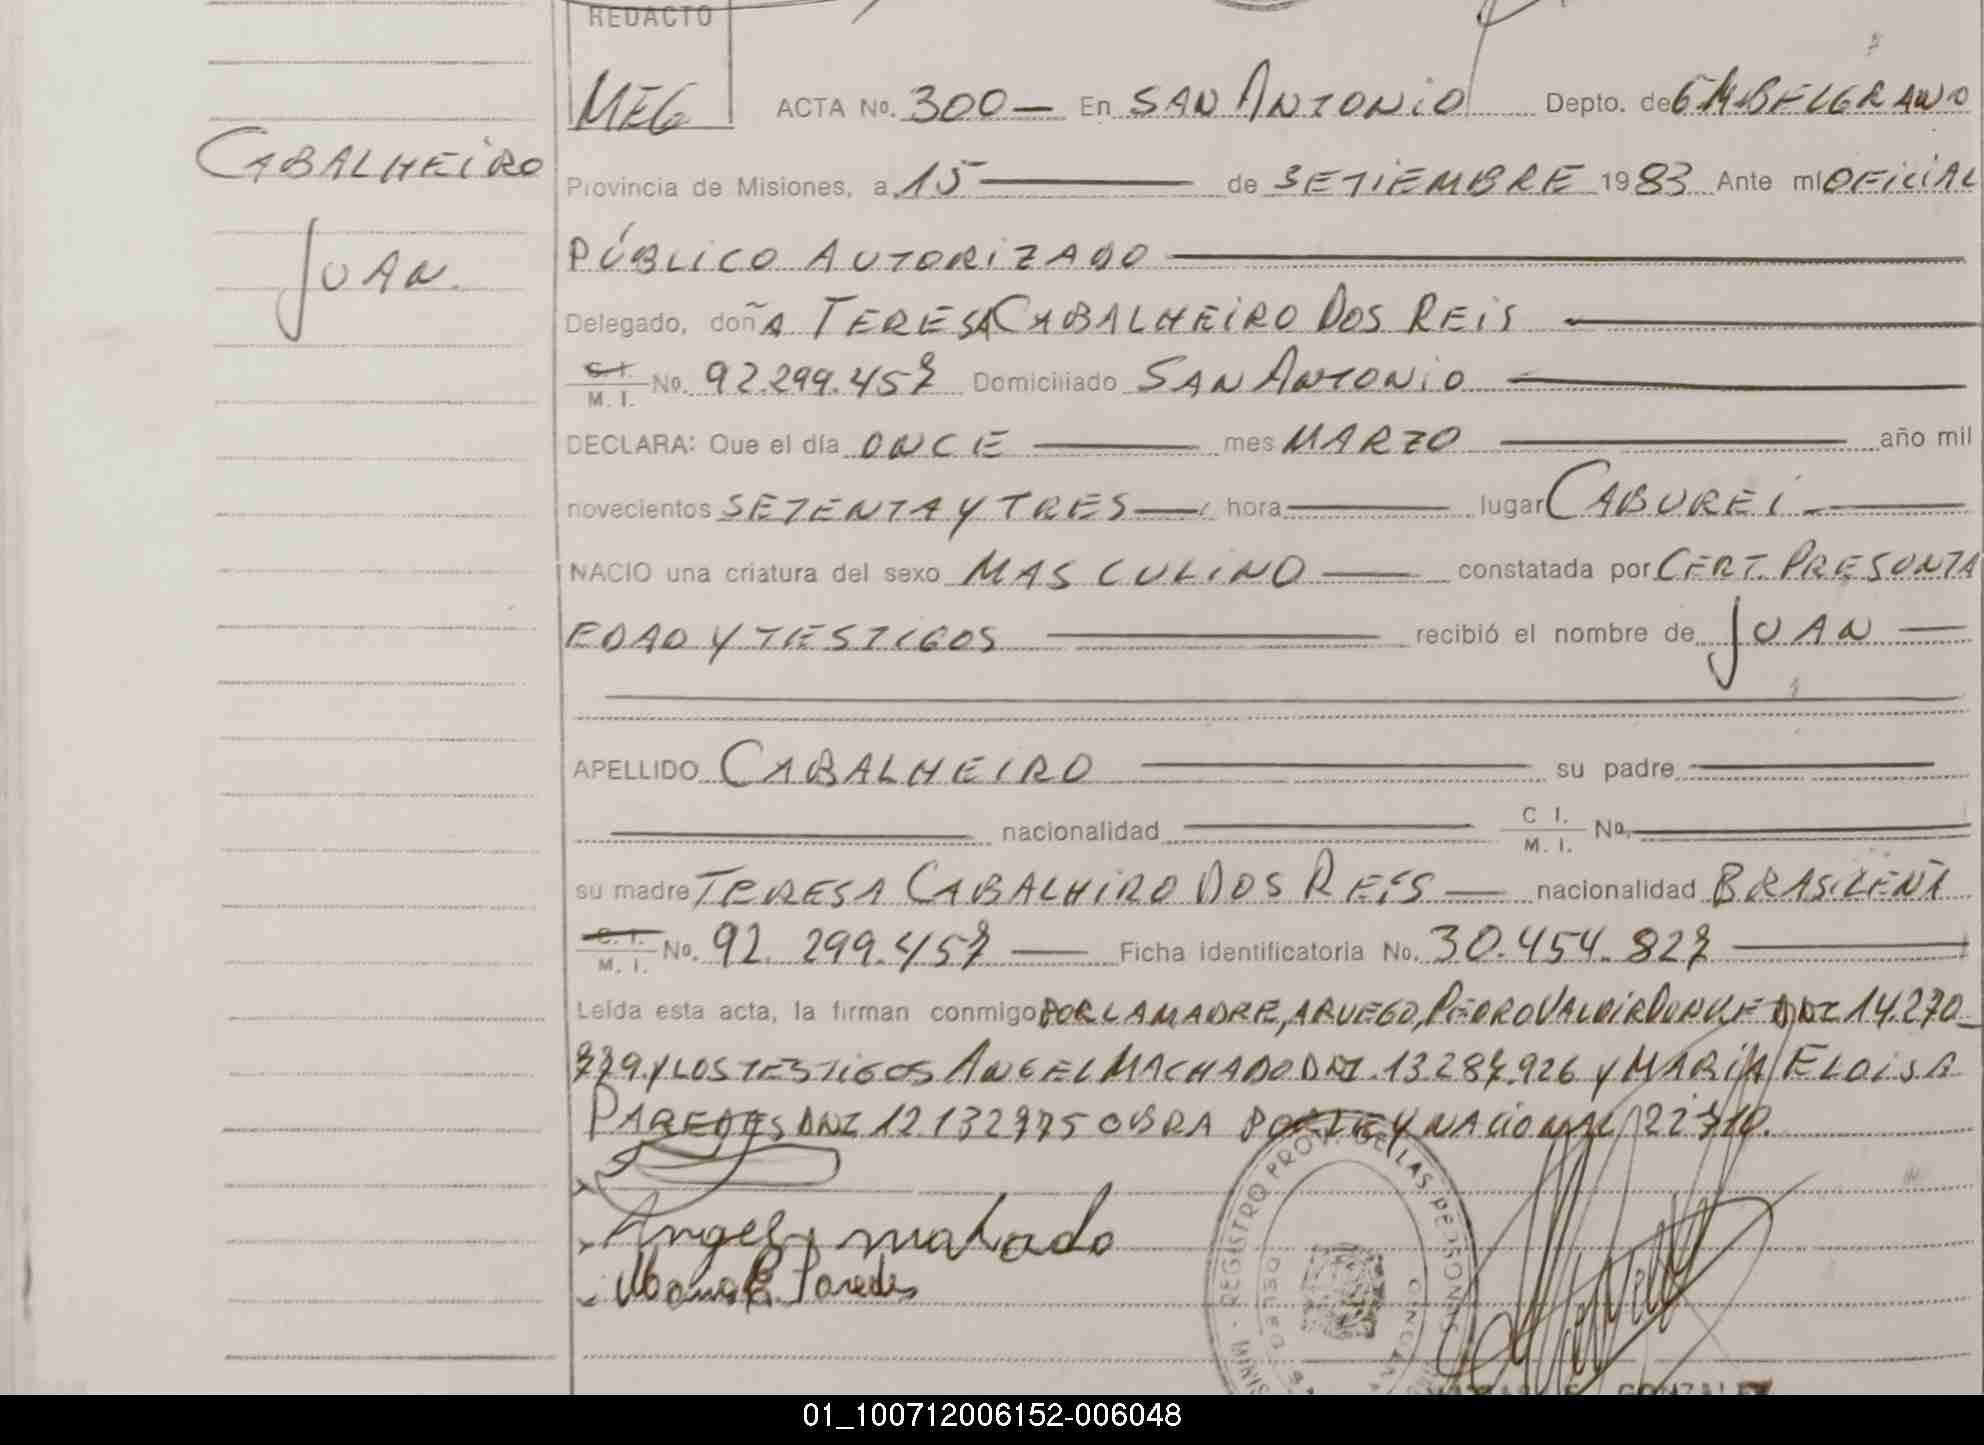 REDACTO
MEG
ACTA No. 300— En SAN ANTONIO Depto. de G M. BELGRANO
CABALHEIRO
JUAN
Provincia de Misiones, a 15 — de SETIEMBRE 1983 Ante mí OFICIAL
PÚBLICO AUTORIZADO —
Delegado, doñA TERESA CABALHEIRO DOS REIS —
C. I. M. I. No. 92.299.457 Domiciliado SAN ANTONIO —
DECLARA: Que el día ONCE — mes MARZO — año mil
novecientos SETENTA Y TRES — hora — lugar CABUREI —
NACIO una criatura del sexo MASCULINO — constatada por CERT. PRESUNTA
EDAD Y TESTIGOS — recibió el nombre de JUAN —
APELLIDO CABALHEIRO — su padre —
— nacionalidad — C I. M. I. No. —
su madre TERESA CABALHIRO DOS REIS — nacionalidad BRASILEÑA
C. I. M. I. No. 92.299.457 — Ficha identificatoria No. 30.454.827 —
Leída esta acta, la firman conmigo POR LA MADRE, A RUEGO, PEDRO VALDIR DNI 14.270_
779. Y LOS TESTIGOS ANGEL MACHADO DNI. 13287.926 Y MARIA ELOISA
PAREDES DNI 12.132975 OBRA POR LEY NACIONAL 22710.
Angel mahado
Paredes
REGISTRO PROV. DE LAS PERSONAS
GONZALEZ
01_100712006152-006048